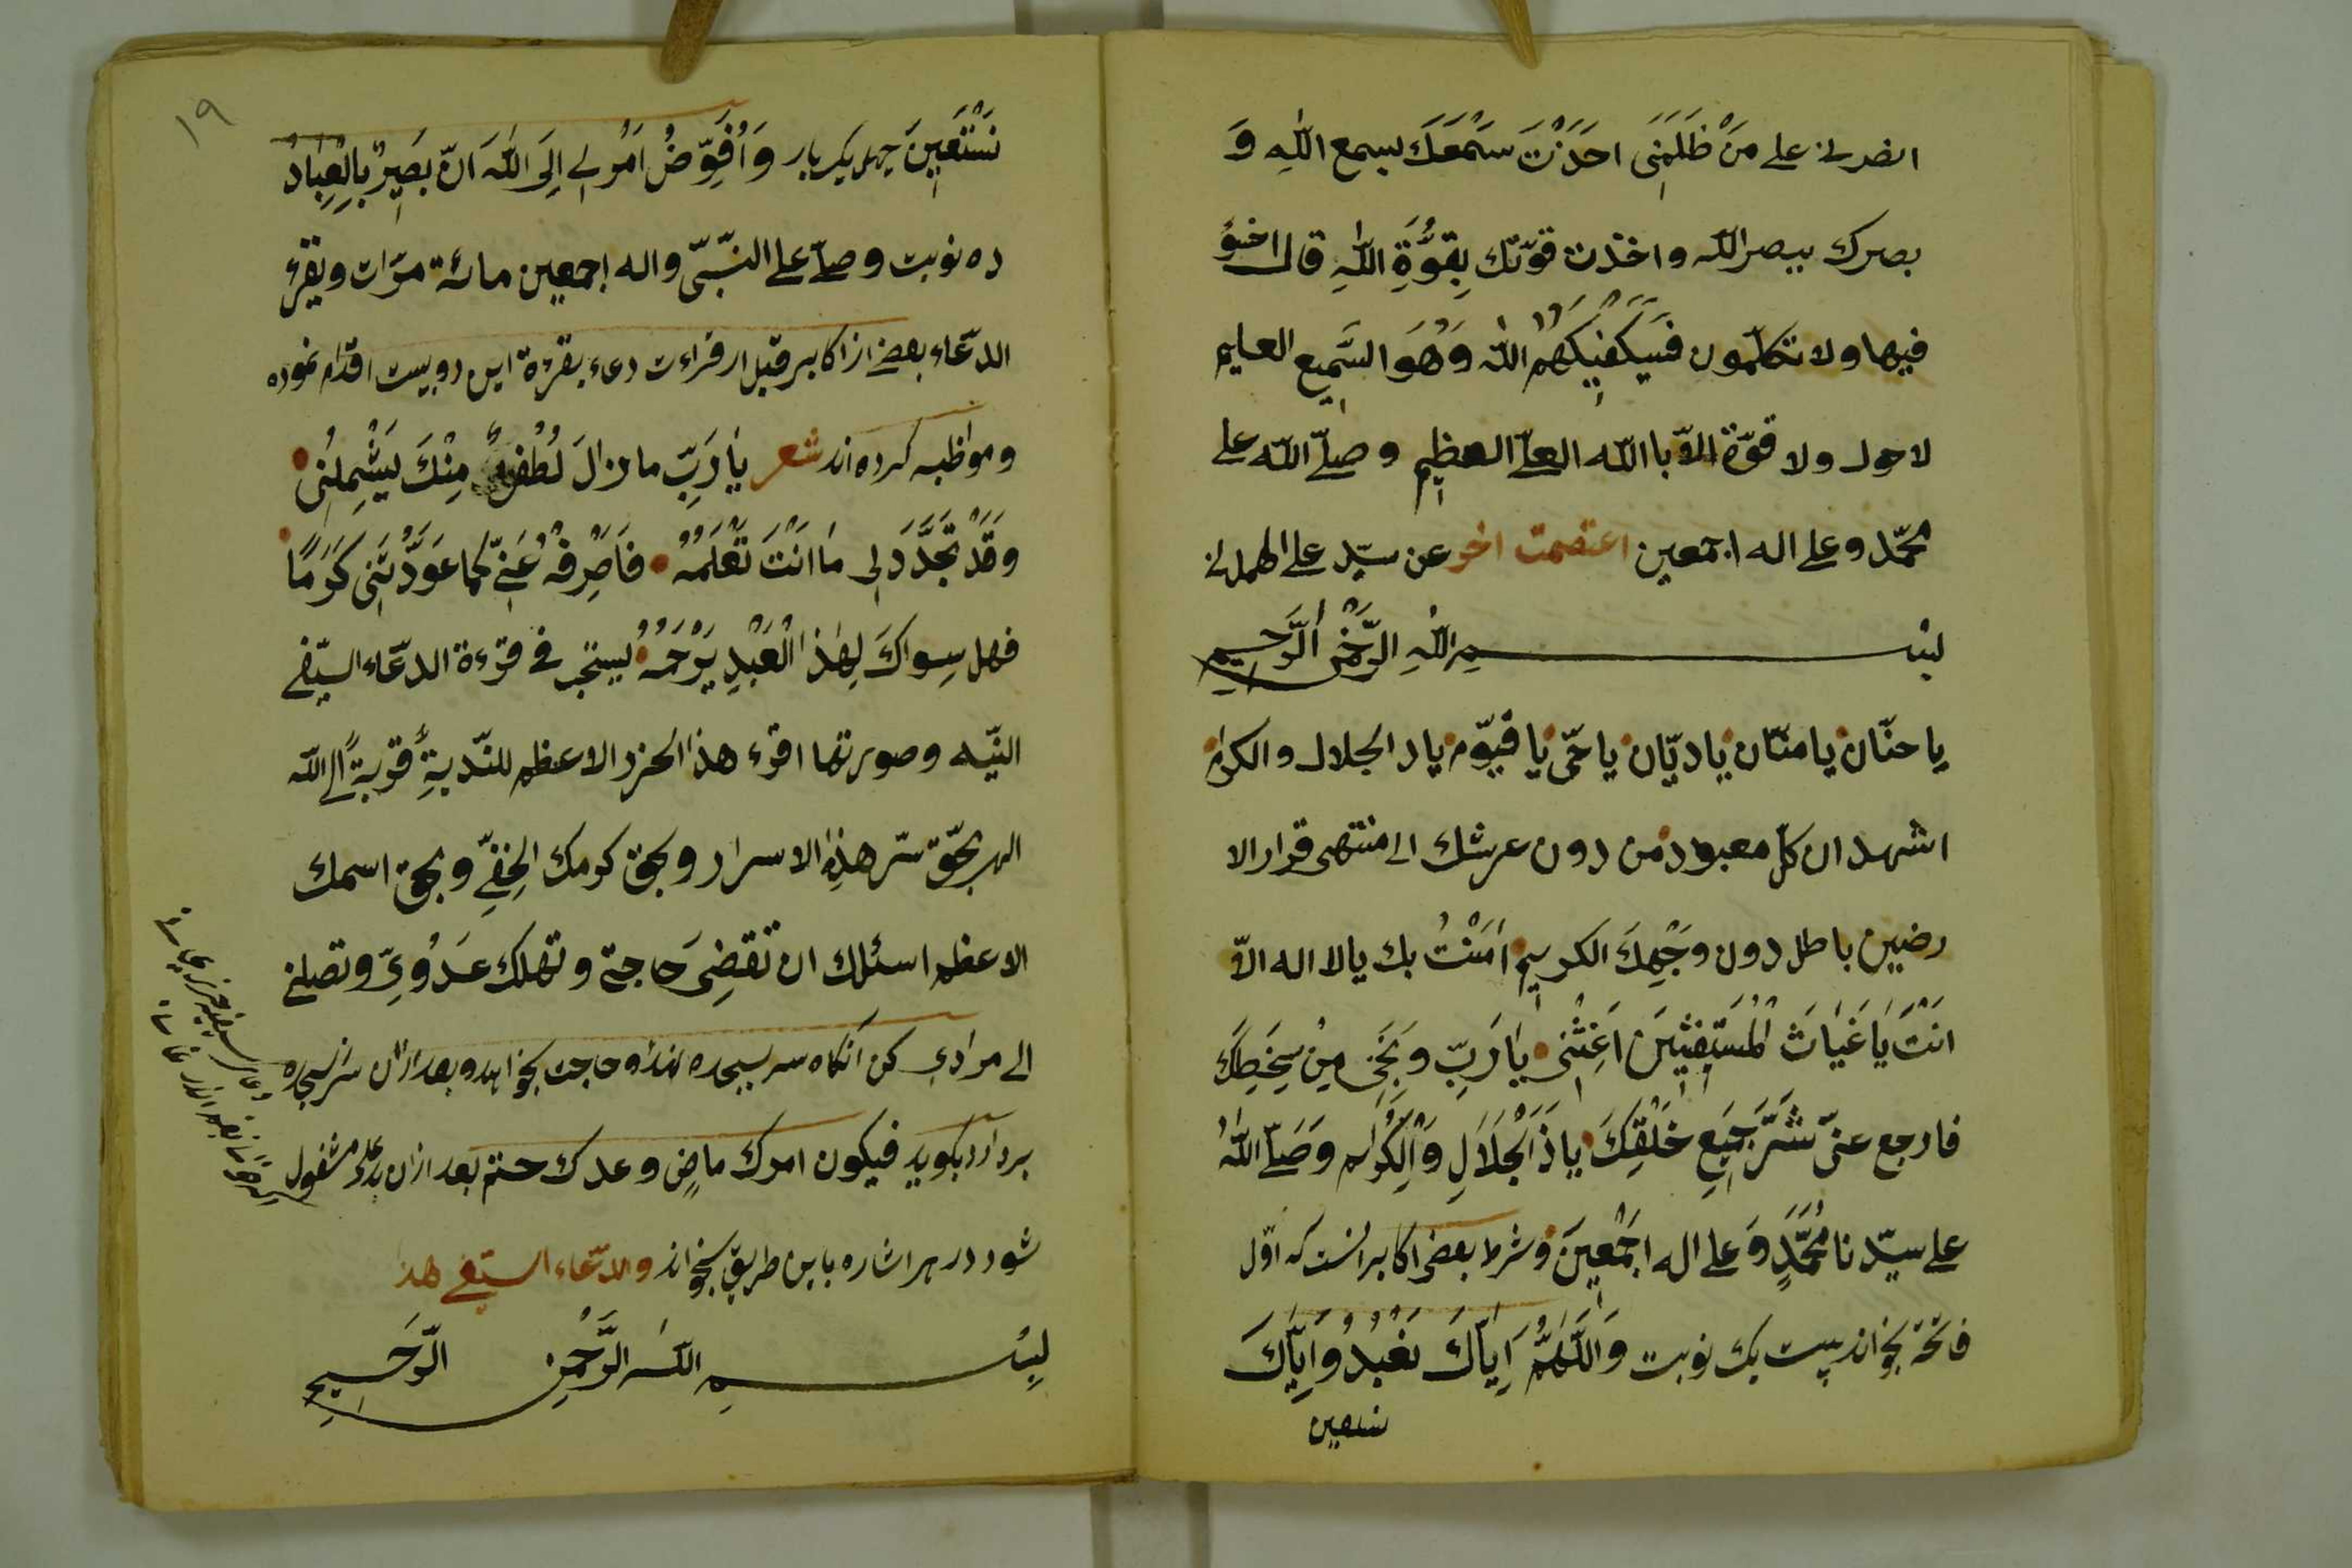 انصرنى على مَنْ ظَلَمَنِى اَخَذْتَ سَمْعَكَ بسمع اللّٰهِ وَ
بصرك ببصر اللّه واخذت قوّتك بِقُوَّةِ اللّٰهِ قال اخسؤ
فيها ولا تكلّمون فَسَيَكْفِيكَهُمُ اللّٰه وَهُوَ السَّمِيع العليم
لا حول ولا قوّة الّا باالله العلىّ العظيمِ وصلّى اللّه على
محمّد وعلى اله اجمعين اعتصمت اخر عن سيّد على الهمدانى
بِسْمِ اللّٰهِ الرَّحْمٰنِ الرَّحيمِ
يا حنّان يا منّان يا ديّان يا حىّ يا قيّوم يا ذ الجلال والاكرام
اشهد ان كلّ معبود من دون عرشك الى منتهى قرار الا
رضين باطل دون وَجْهِكَ الكريمِ اٰمَنْتُ بك يا لا اله الّا
اَنْتَ يَا غَيٰاثَ الْمُسْتَغِيثِينَ اَغِثْنِى يٰا رَبِّ وَنَجِّنِى مِنْ سَخَطِكَ
فارجع عنّى شَرَّ جَمِيعِ خَلْقِكَ يا ذَ الْجَلَالِ وَالْاِكْرٰام وَصَلَّى اللّٰهُ
على سيّدنا مُحَمَّدٍ وَعلى اله اجْمَعِينَ وشرط بعضى اكابر انست كه اوّل
فاتحة بخواند بيست يك نوبت وَاللّٰهُمَّ اِيّٰاكَ نَعْبُدُ وَاِيّٰاكَ
نستعين
١٩
نَسْتَعِينَ چهل يكبار وَاُفَوِّضُ اَمْرِى اِلَى اللّٰه انّ بَصِيرٌ بِالْعِبٰادْ
ده نوبت وصلّ على النّبىّ واله اجمعين مائة مرّات ويقرء
الدّعاء بعضى از اكابر قبل از قراءت دعء بقرءة اين دو بيت اقدام نموده
ومواظبه كرده اند شعر يٰا رَبِّ ما زالَ لُطْفٌ مِنْكَ يَشْمِلُنِى
وقَدْ تَجَدَّدَ لِى مٰا اَنْتَ تَعْلَمُهُ فَاصْرِفْهُ عَنِّى كما عَوَّدْتَنِى كَرَمًا
فهل سِواكَ لِهٰذَا الْعَبْدِ يَرْحَمُهُ يستخر فى قرءة الدّعاء السّيفى
النيّه وصورتها اقرء هذا الحرز الاعظم للنّدبةِ قربةً الى اللّه
الهى بحقّ سرّ هذِه الاسرار وبحق كرمك الخفىّ وبحق اسمك
الاعظم اسئلك ان تقضِى حاجتى وتهلك عَدُوّى وتصلنى
الى مرادى كن آنكاه سر بسجده نهد وحاجت بخواهد وبعد از آن سر از سجده
بردارد بكويد فيكون امرك ماضٍ وعدك حتم بعد از آن بدعاء مشغول
شود در هر اشاره باين طريق بخواند والدّعاء السّيفى هذا
بِسْمِ اللّٰهِ الرَّحْمٰنِ الرَّحيمِ